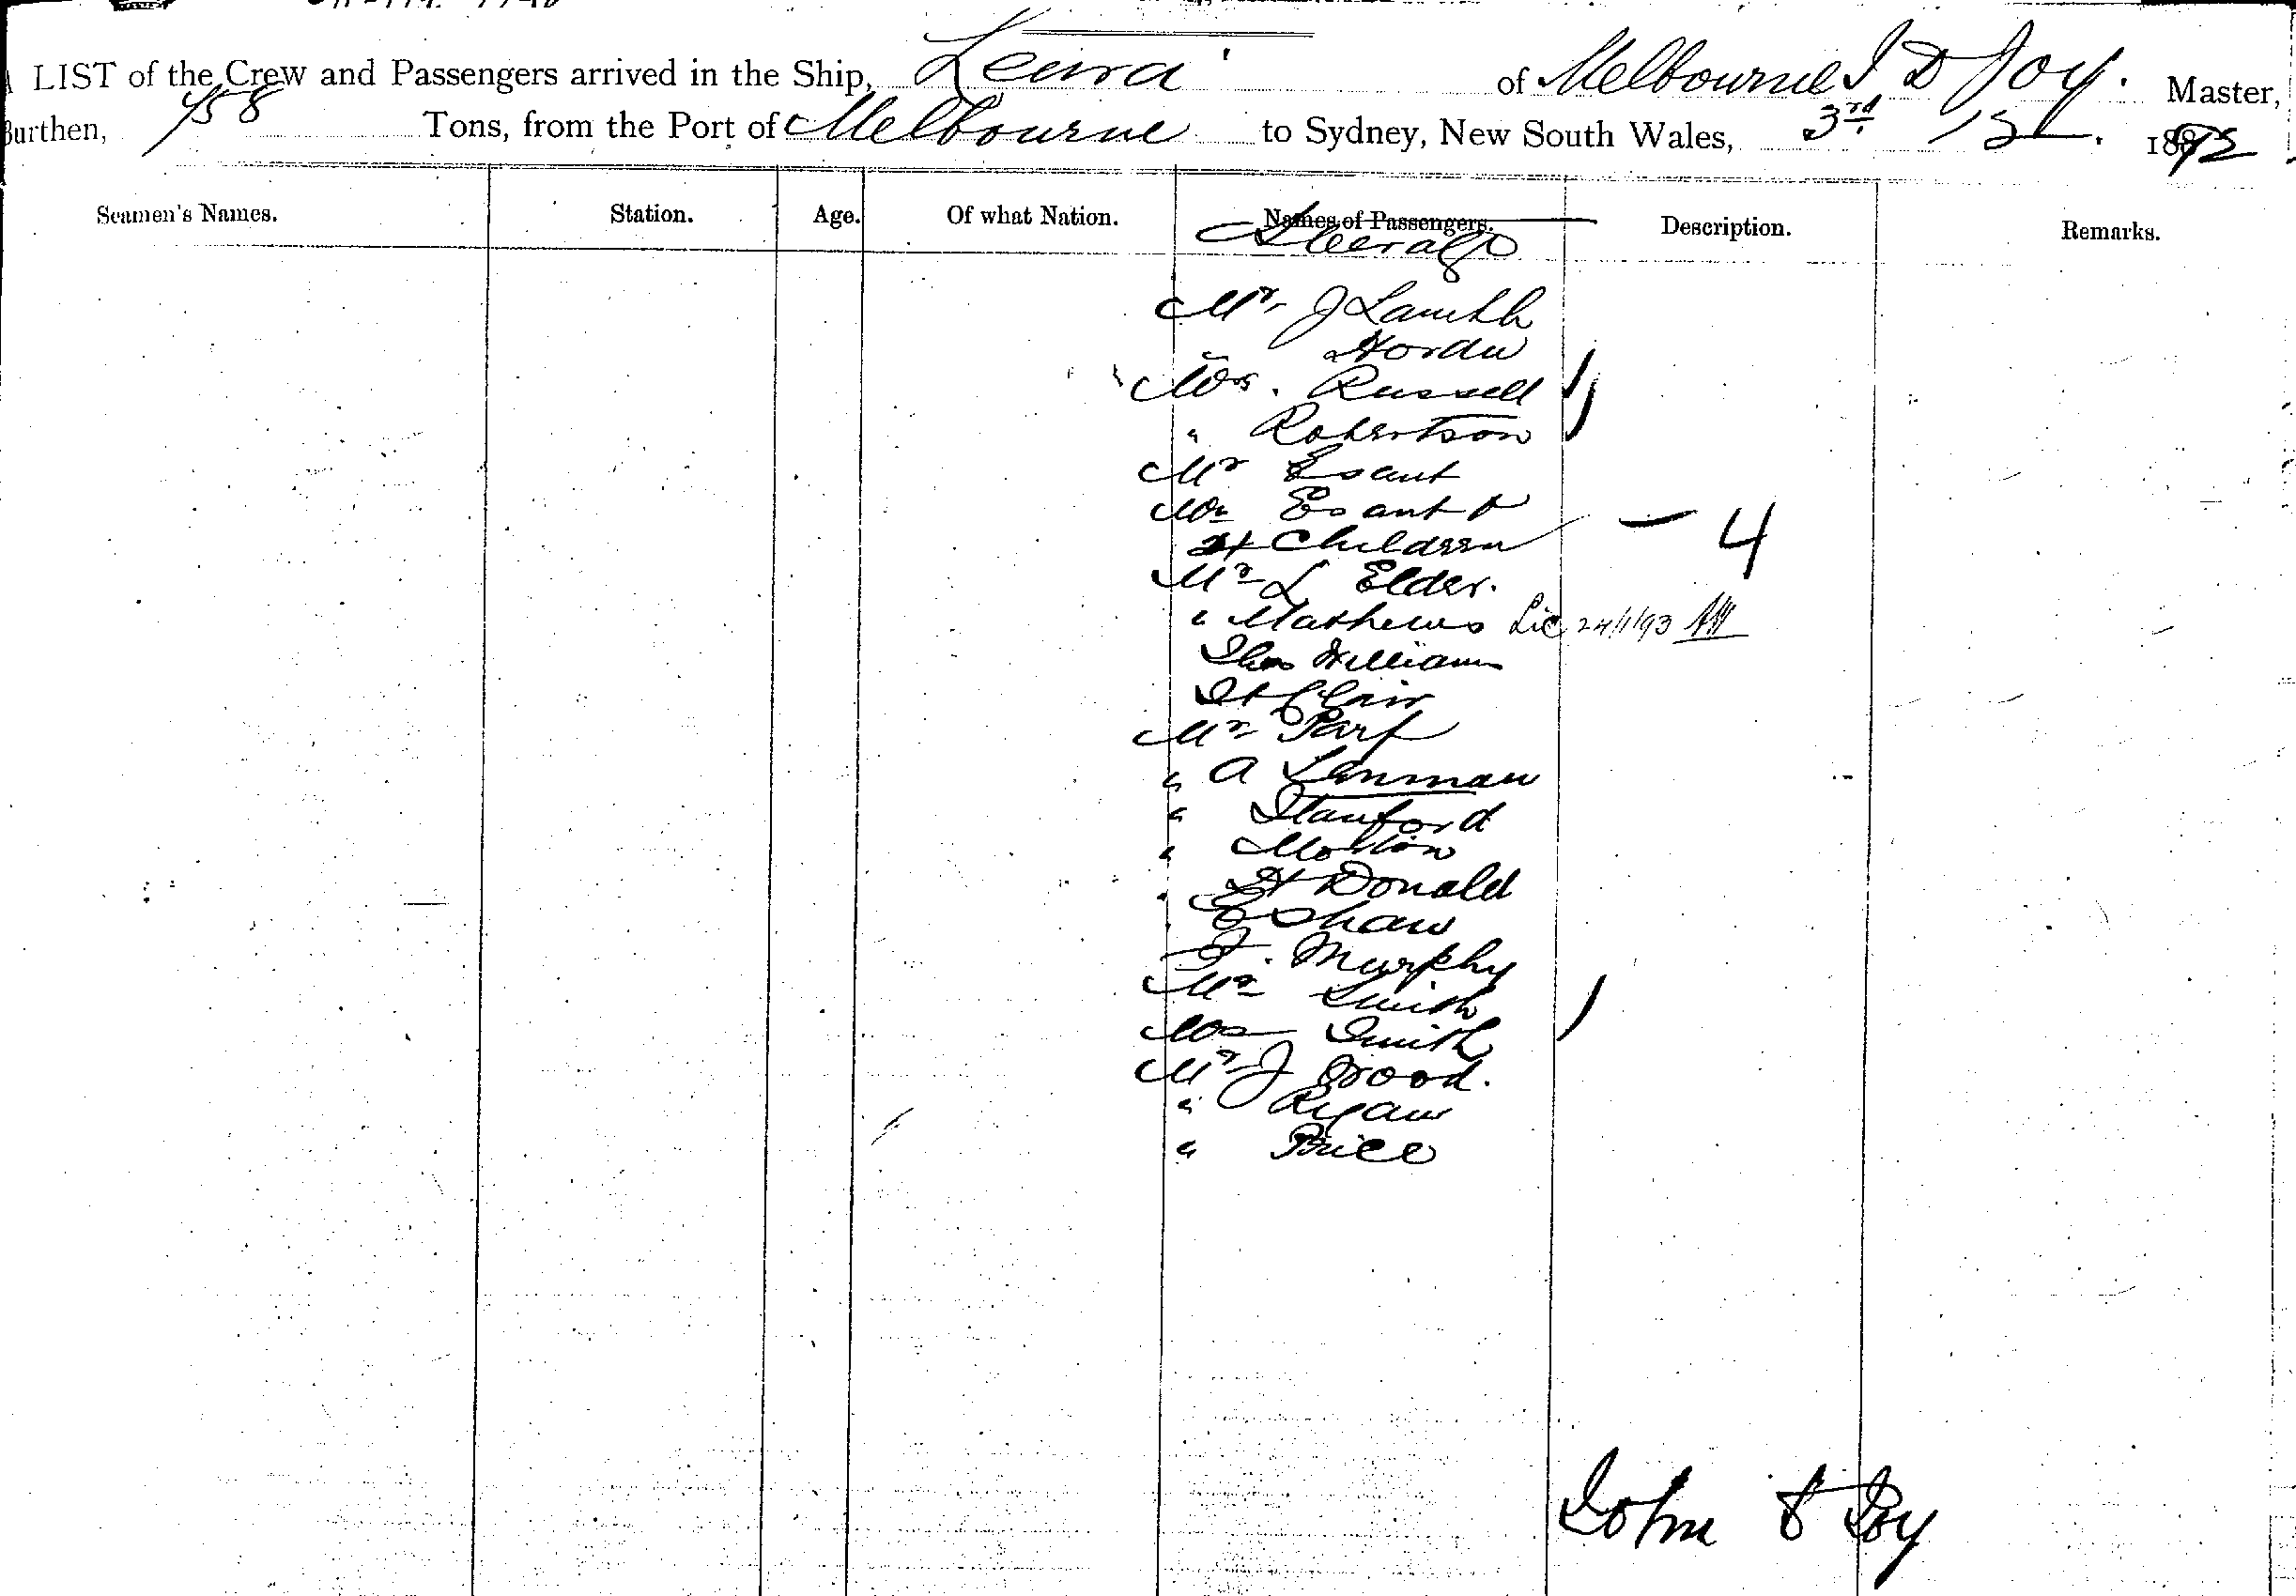 LIST of the Crew and Passengers arrived in the Ship, Leura of Melbourne J D Joy. Master,
Burthen, 758 Tons, from the Port of Melbourne to Sydney, New South Wales, 3rd 12. 1892
Seamen's Names. Station. Age. Of what Nation. Names of Passengers. Description. Remarks.
Steerage
Mr J
Mrs. Russell
" Robertson
Mr Esant
Mrs Esant &
4 Children - 4
Mr L Elder.
" Mathews Lic 24/1/93
Thos William
St Clair
Mr
" A Lenman
" Stanford
" Morton
" H Donald
" E Shaw
J. Murphy
Mr Smith
Mrs Smith
Mr J Wood.
" Ryan
" Price
John D Joy